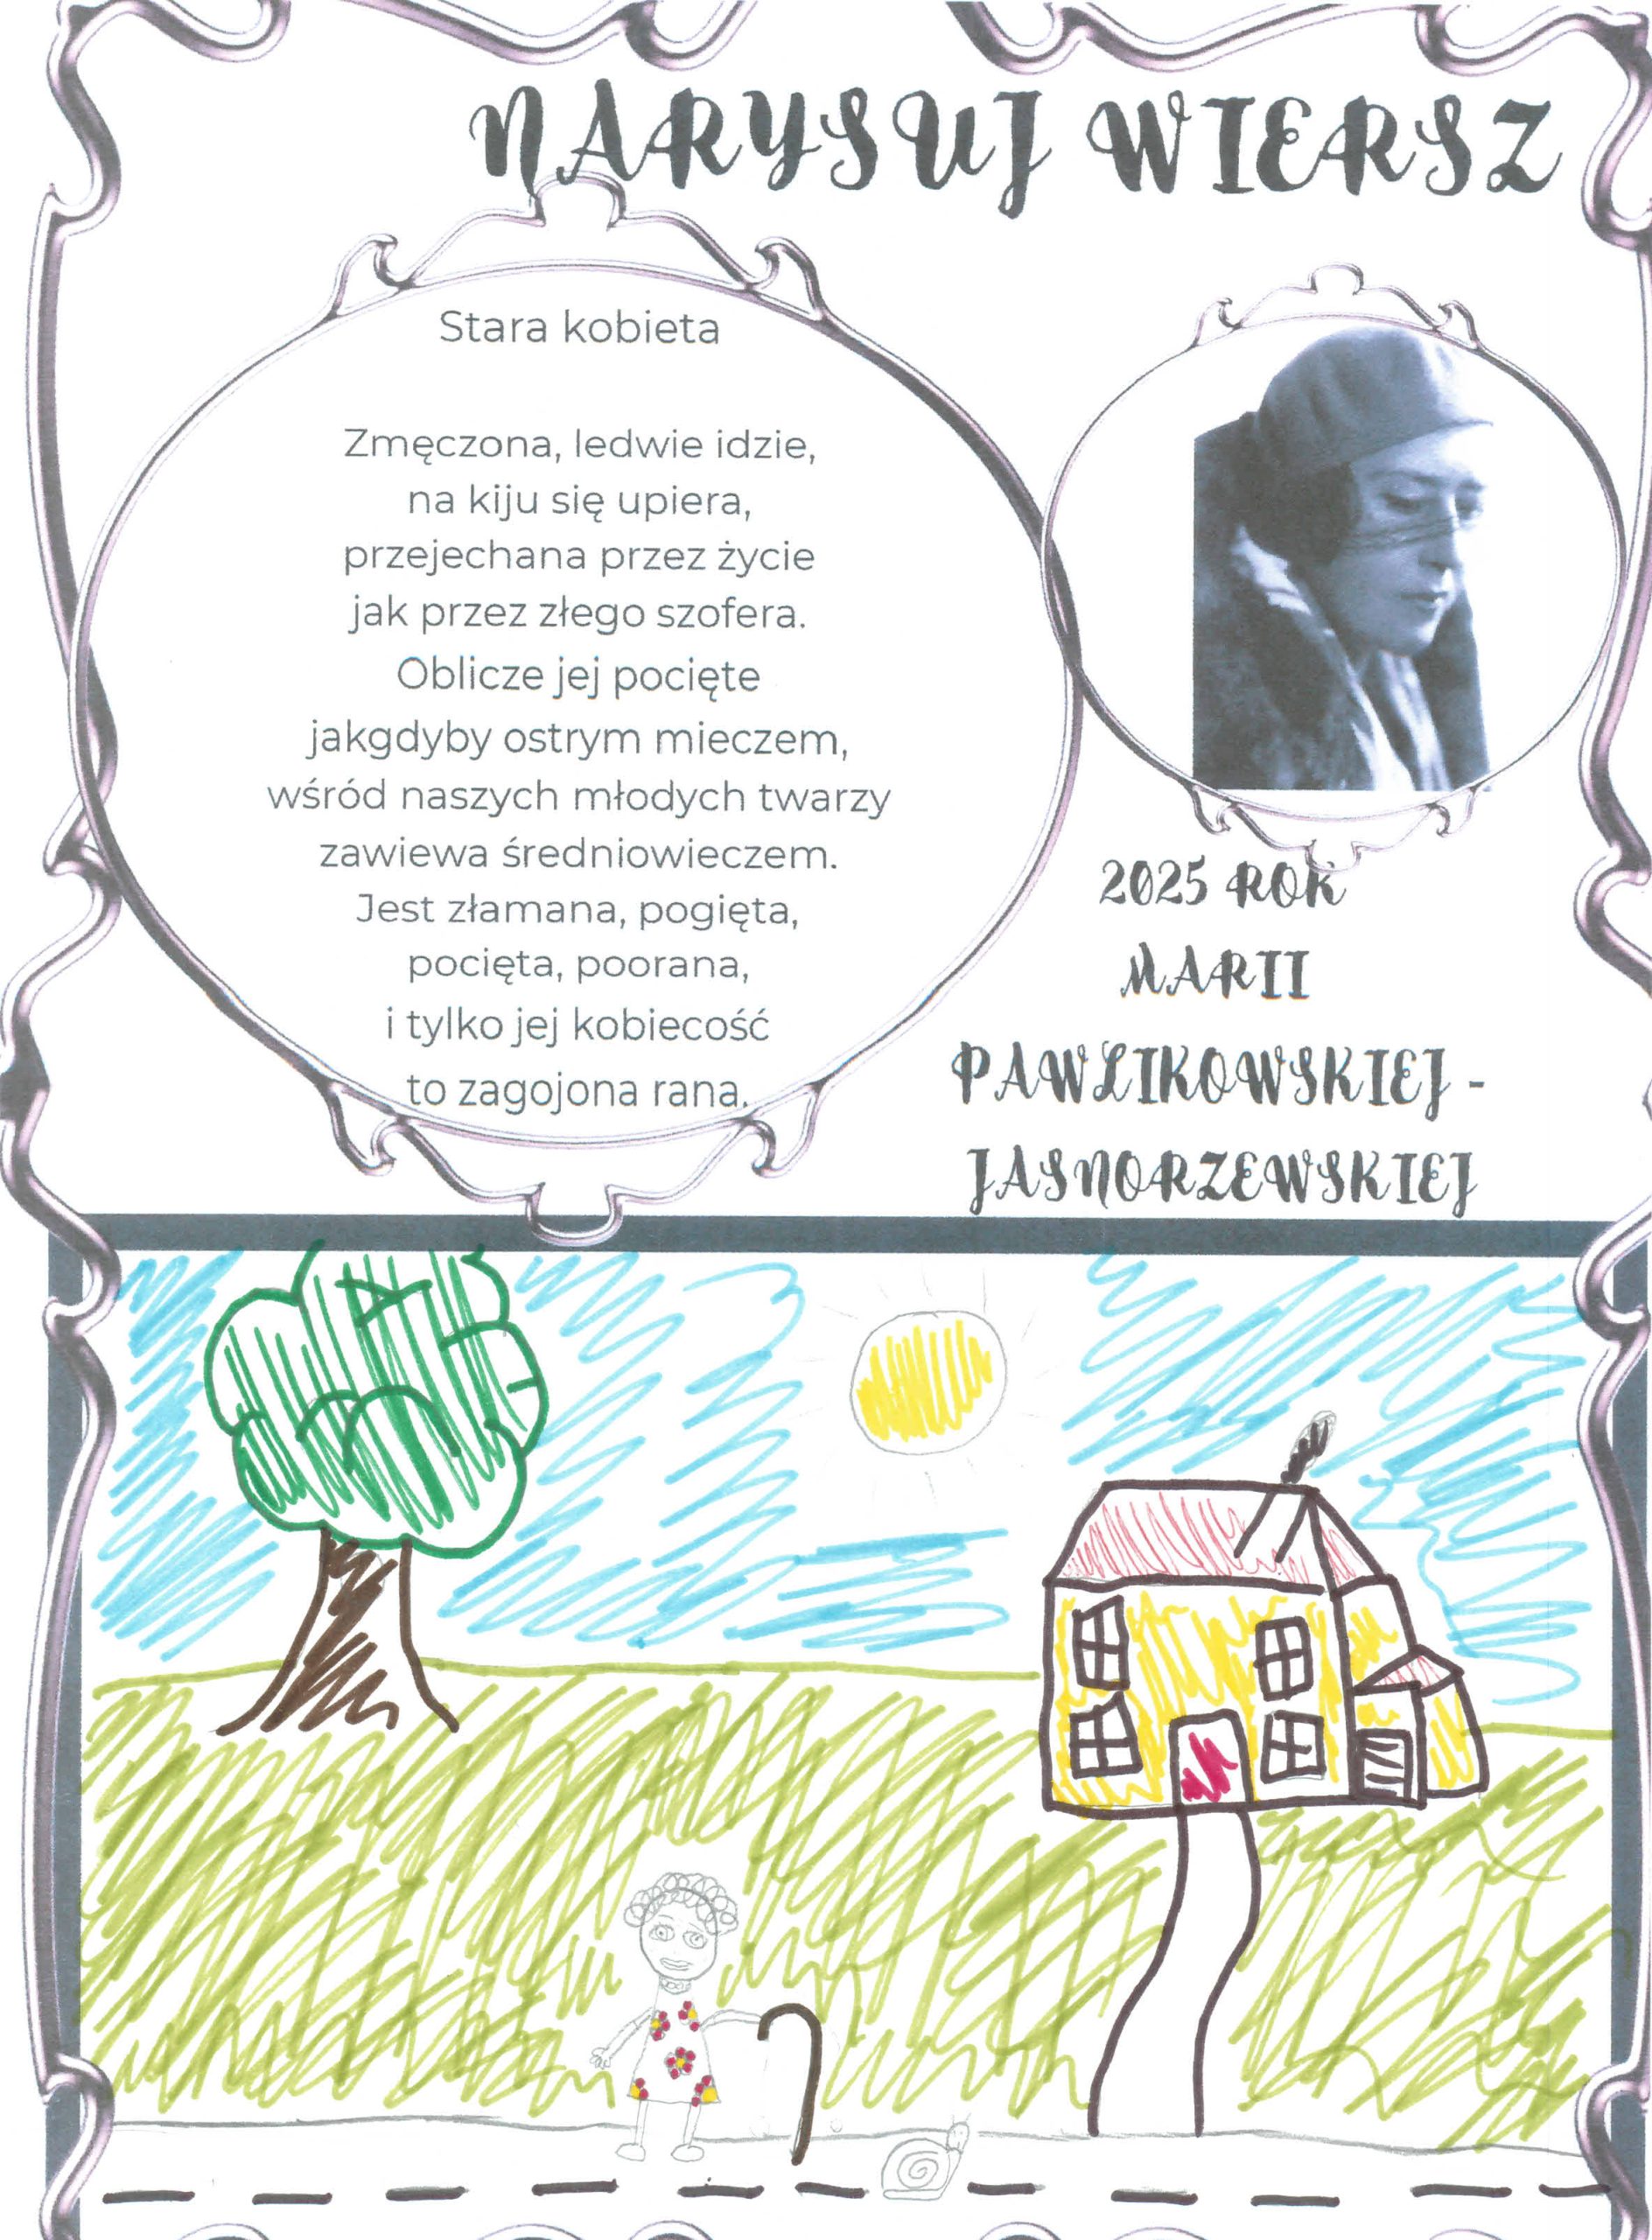 NARYSUJ WIERSZ
Stara kobieta
Zmęczona, ledwie idzie,
na kiju się upiera,
przejechana przez życie
jak przez złego szofera.
Oblicze jej pocięte
jakgdyby ostrym mieczem,
wśród naszych młodych twarzy
zawiewa średniowieczem.
Jest złamana, pogięta,
pocięta, poorana,
i tylko jej kobiecość
to zagojona rana.
2025 ROK
MARII
PAWLIKOWSKIEJ -
JASNORZEWSKIEJ